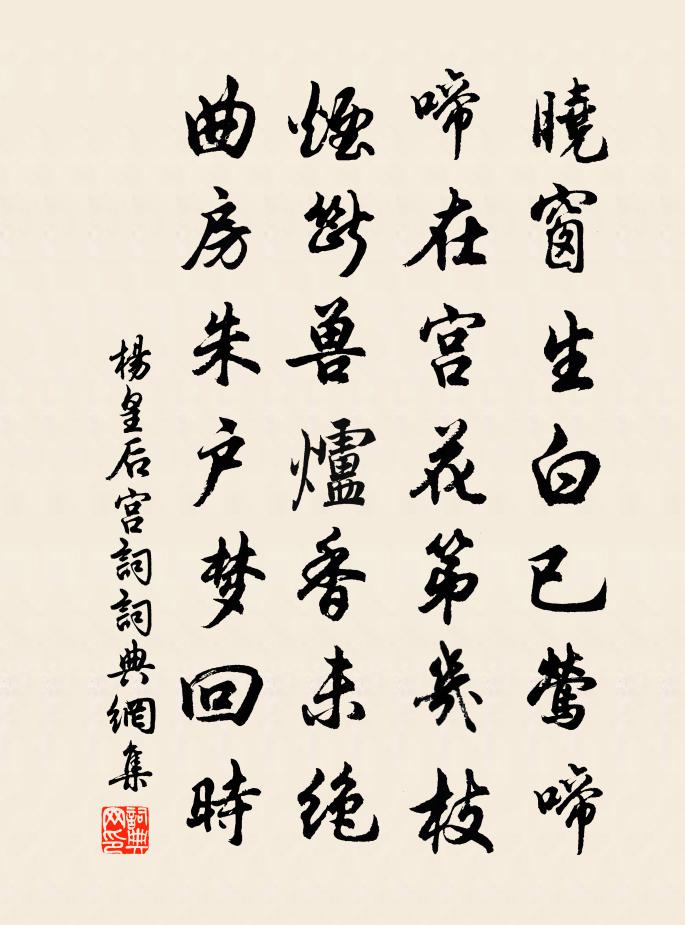 曉窗生白已鶯啼
啼在宫花第幾枝
煙斷兽爐香未绝
曲房朱户梦回時
楊皇后宫詞詞典網集
詞典网印